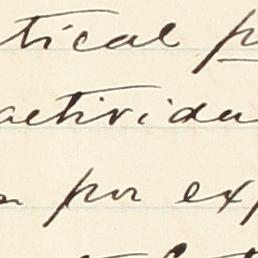 tical p
activida
por exp